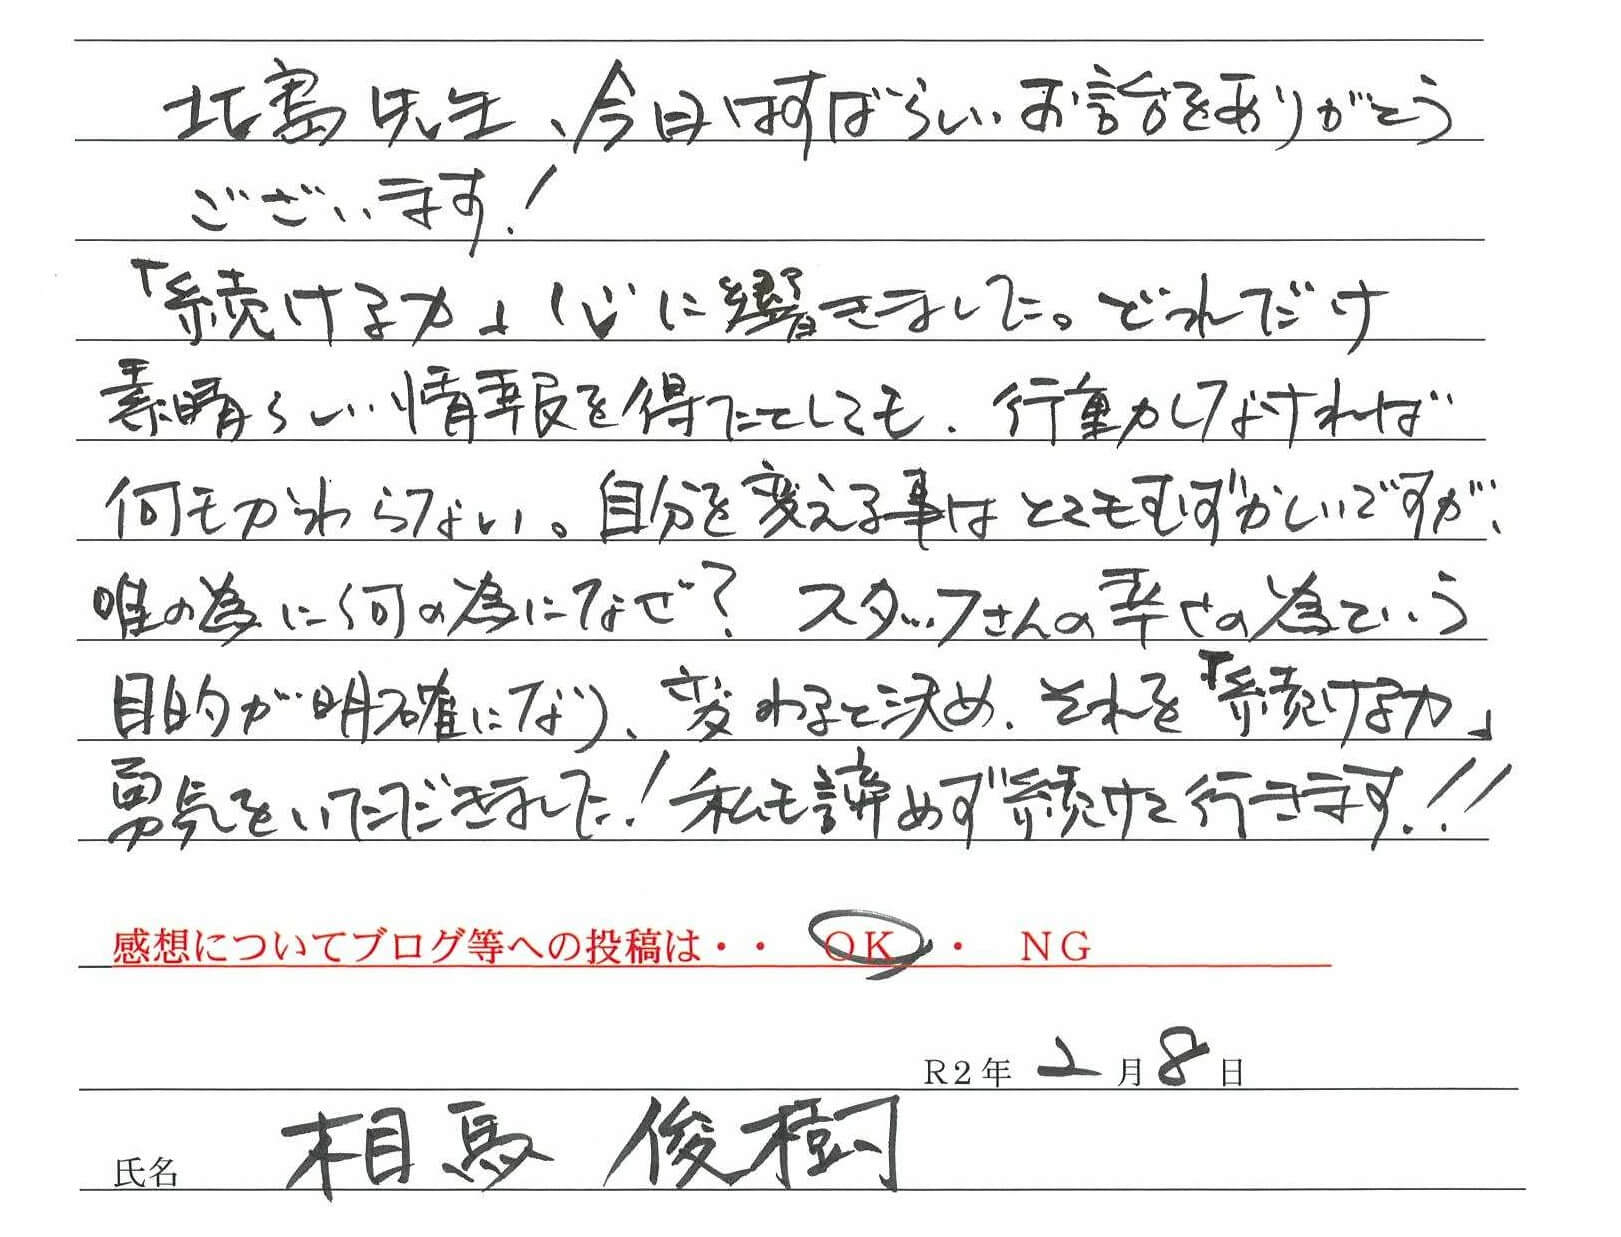 北島先生、今日はすばらしいお話をありがとう
ございます!
「続ける力」心に響きました。どれだけ
素晴らしい情報を得たとしても、行動しなければ
何もかわらない。自分を変える事はとてもむずかしいですが、
唯の為に何の為になぜ? スタッフさんの幸せの為という
目的が明確になり、変わると決め、それを「続ける力」
勇気をいただきました!私も諦めず続けて行きます!!
感想についてブログ等への投稿は・・ OK ・ NG
R2年 2月8日
氏名 相馬 俊樹